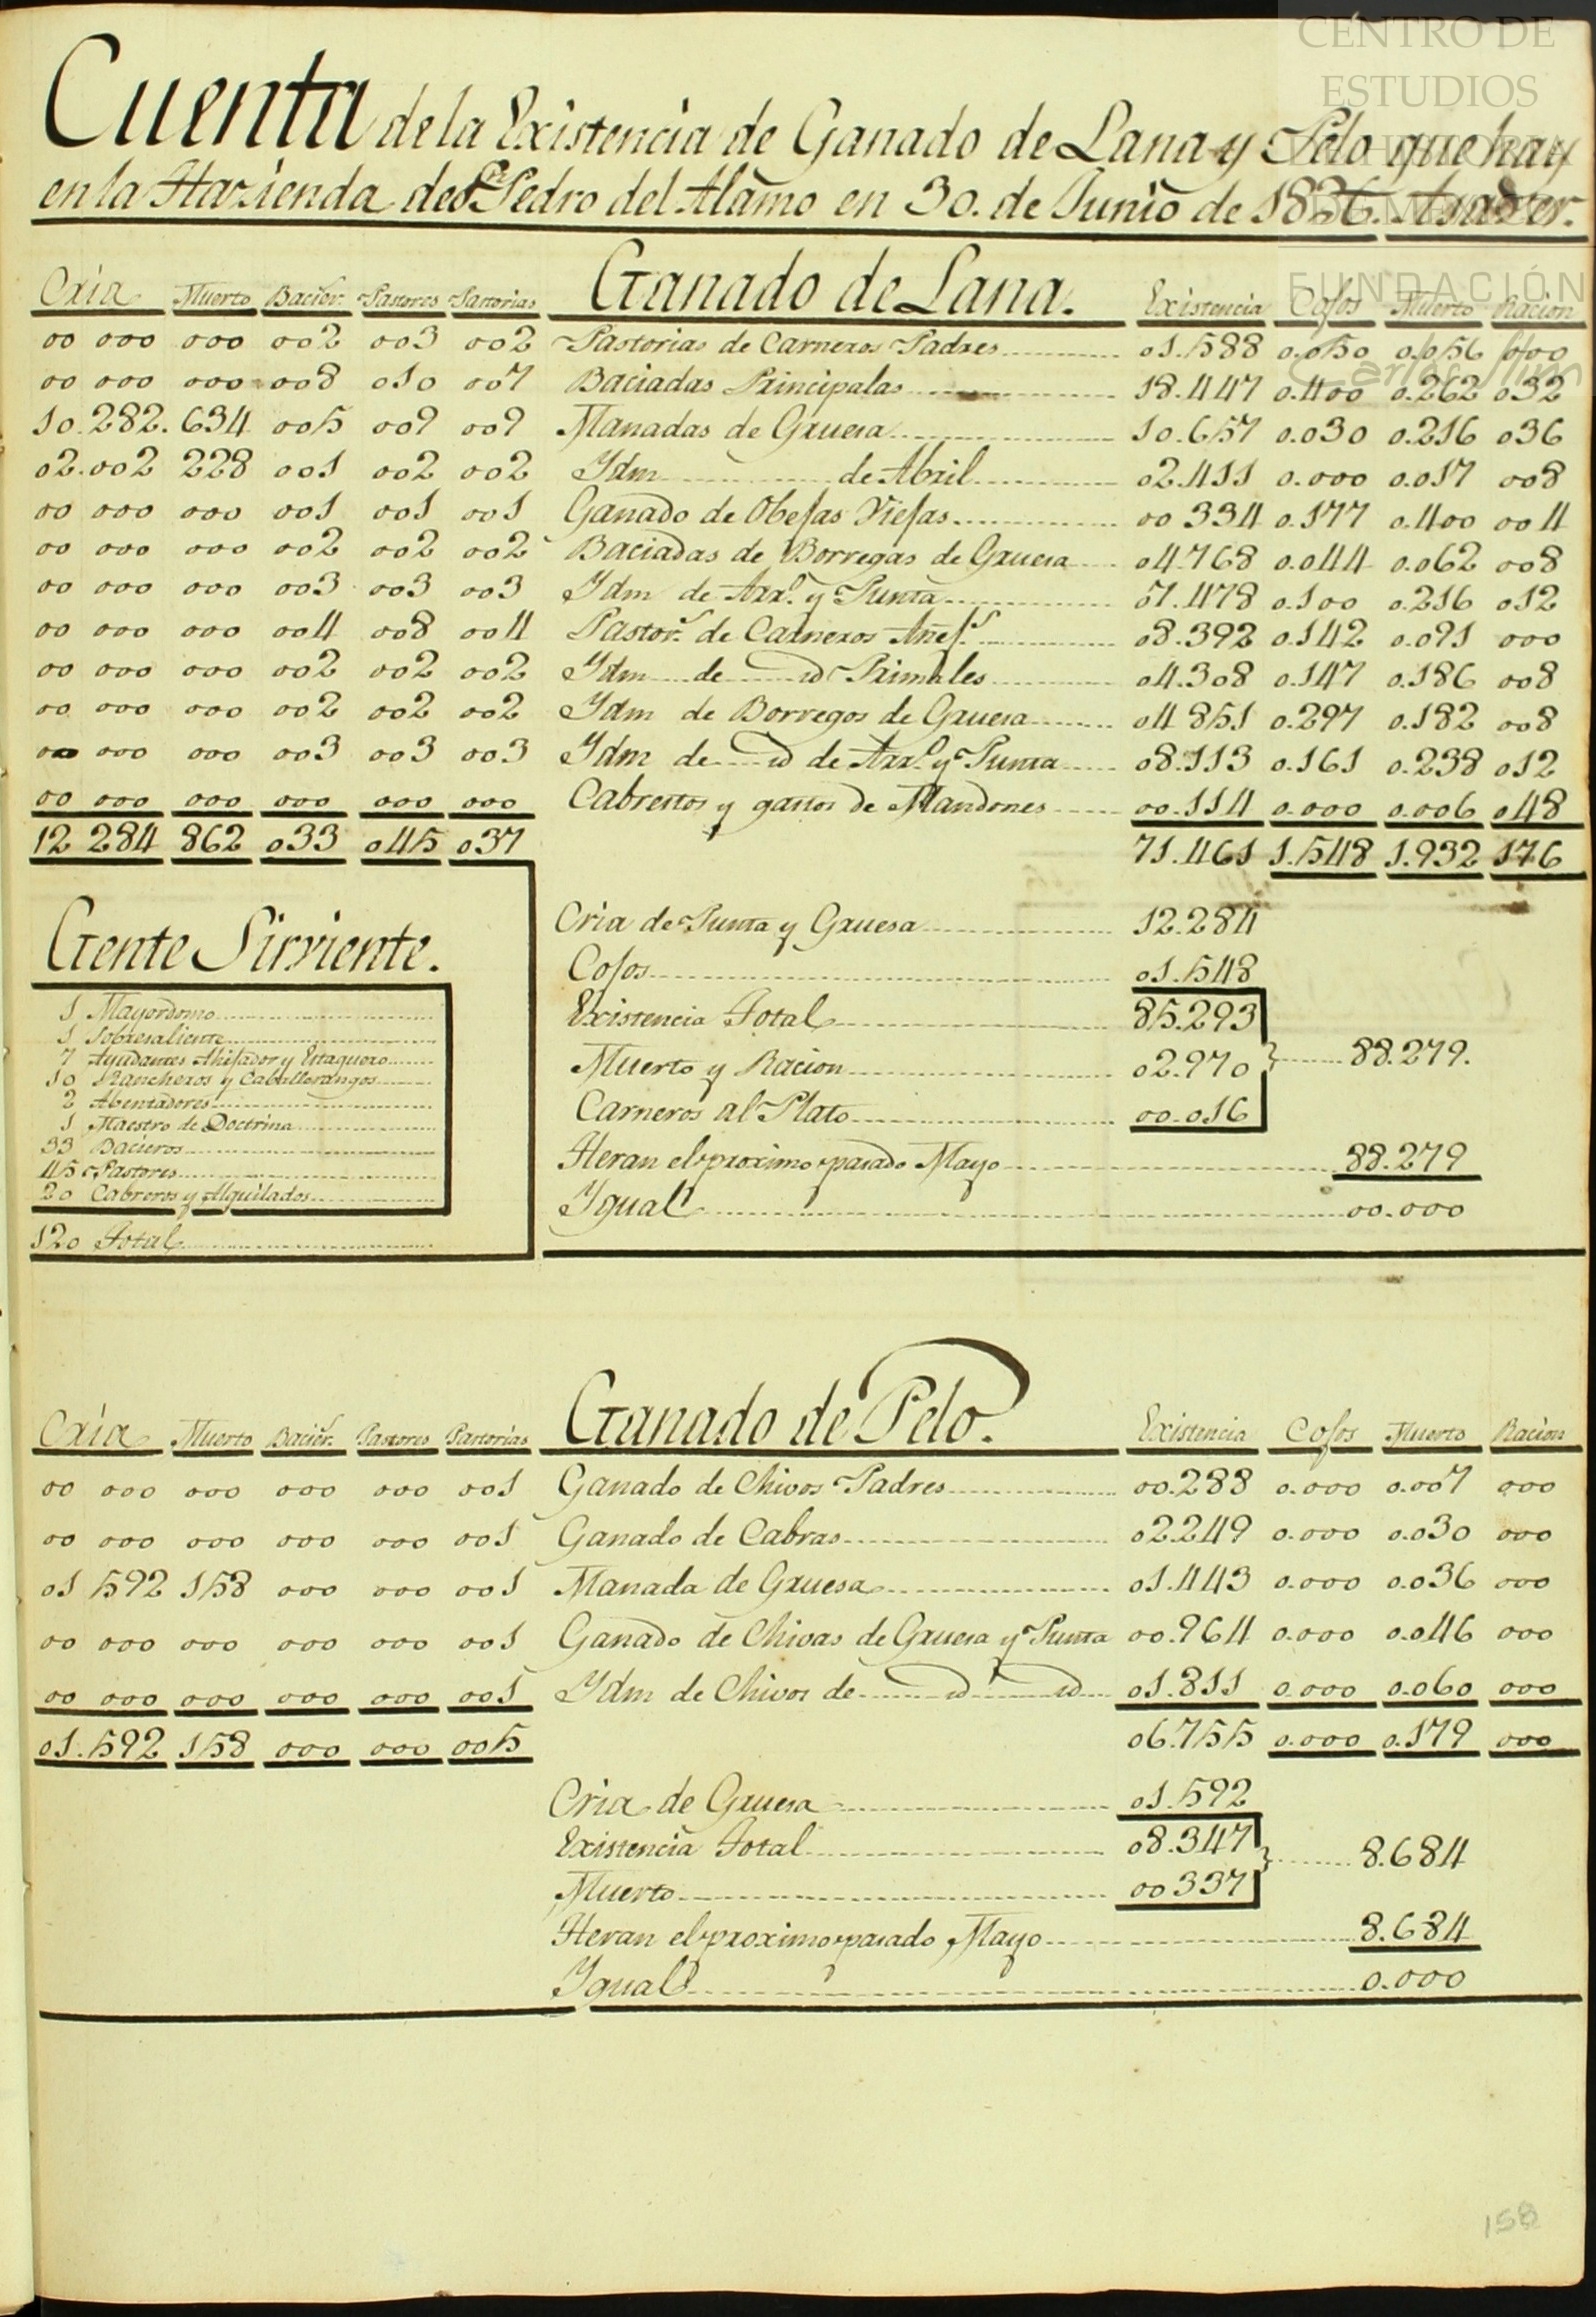 CENTRO DE
ESTUDIOS
FUNDACIÓN
Carlos Slim
Cuenta de la Existencia de Ganado de Lana y Pelo que hay
en la Hazienda de Sn. Pedro del Alamo en 30. de Junio de 1836. Asaber.
Cria Muerto Bacier.s Pastores Pastorias Ganado de Lana. Existencia Cojos Muerto Racion
00 000 000 002 003 002 Pastorias de Carneros Padres 01.588 0.050 0.056 000
00 000 000 008 010 007 Baciadas Principalas 18.447 0.400 0.262 032
10.282. 634 005 009 009 Manadas de Gruesa 10.657 0.030 0.216 036
02.002 228 001 002 002 Ydm de Abril 02.411 0.000 0.017 008
00 000 000 001 001 001 Ganado de Obejas Viejas 00 334 0.177 0.400 004
00 000 000 002 002 002 Baciadas de Borregas de Gruesa 04.768 0.044 0.062 008
00 000 000 003 003 003 Ydm de Arr.o y Punta 07.478 0.100 0.216 012
00 000 000 004 008 004 Pastor.s de Carneros Añej.s 08.392 0.142 0.091 000
00 000 000 002 002 002 Ydm de id Primales 04.308 0.147 0.186 008
00 000 000 002 002 002 Ydm de Borregos de Gruesa 04 851 0.297 0.182 008
00 000 000 003 003 003 Ydm de id de Arr.o y Punta 08.113 0.161 0.238 012
00 000 000 000 000 000 Cabrestos y gastos de Mandones 00.114 0.000 0.006 048
12 284 862 033 045 037 71.461 1.548 1.932 176
Gente Sirviente.
1 Mayordomo
1 Sobresaliente
7 Ayudantes Ahijador y Estaquero
10 Rancheros y Caballerangos
2 Abentadores
1 Maestro de Doctrina
33 Bacieros
45 Pastores
20 Cabreros y Alquilados
120 Total
Cria de Punta y Gruesa 12.284
Cojos 01.548
Existencia Total 85.293
Muerto y Racion 02.970 88.279.
Carneros al Plato 00.016
Heran el proximo pasado Mayo 88.279
Ygual 00.000
Cria Muerto Bacier.s Pastores Pastorias Ganado de Pelo. Existencia Cojos Muerto Racion
00 000 000 000 000 001 Ganado de Chivos Padres 00.288 0.000 0.007 000
00 000 000 000 000 001 Ganado de Cabras 02.249 0.000 0.030 000
01 592 158 000 000 001 Manada de Gruesa 01.443 0.000 0.036 000
00 000 000 000 000 001 Ganado de Chivas de Gruesa y Punta 00.964 0.000 0.046 000
00 000 000 000 000 001 Ydm de Chivos de id id 01.811 0.000 0.060 000
01.592 158 000 000 005 06.755 0.000 0.179 000
Cria de Gruesa 01.592
Existencia Total 08.347 8.684
Muerto 00 337
Heran el proximo pasado Mayo 8.684
Ygual 0.000
158